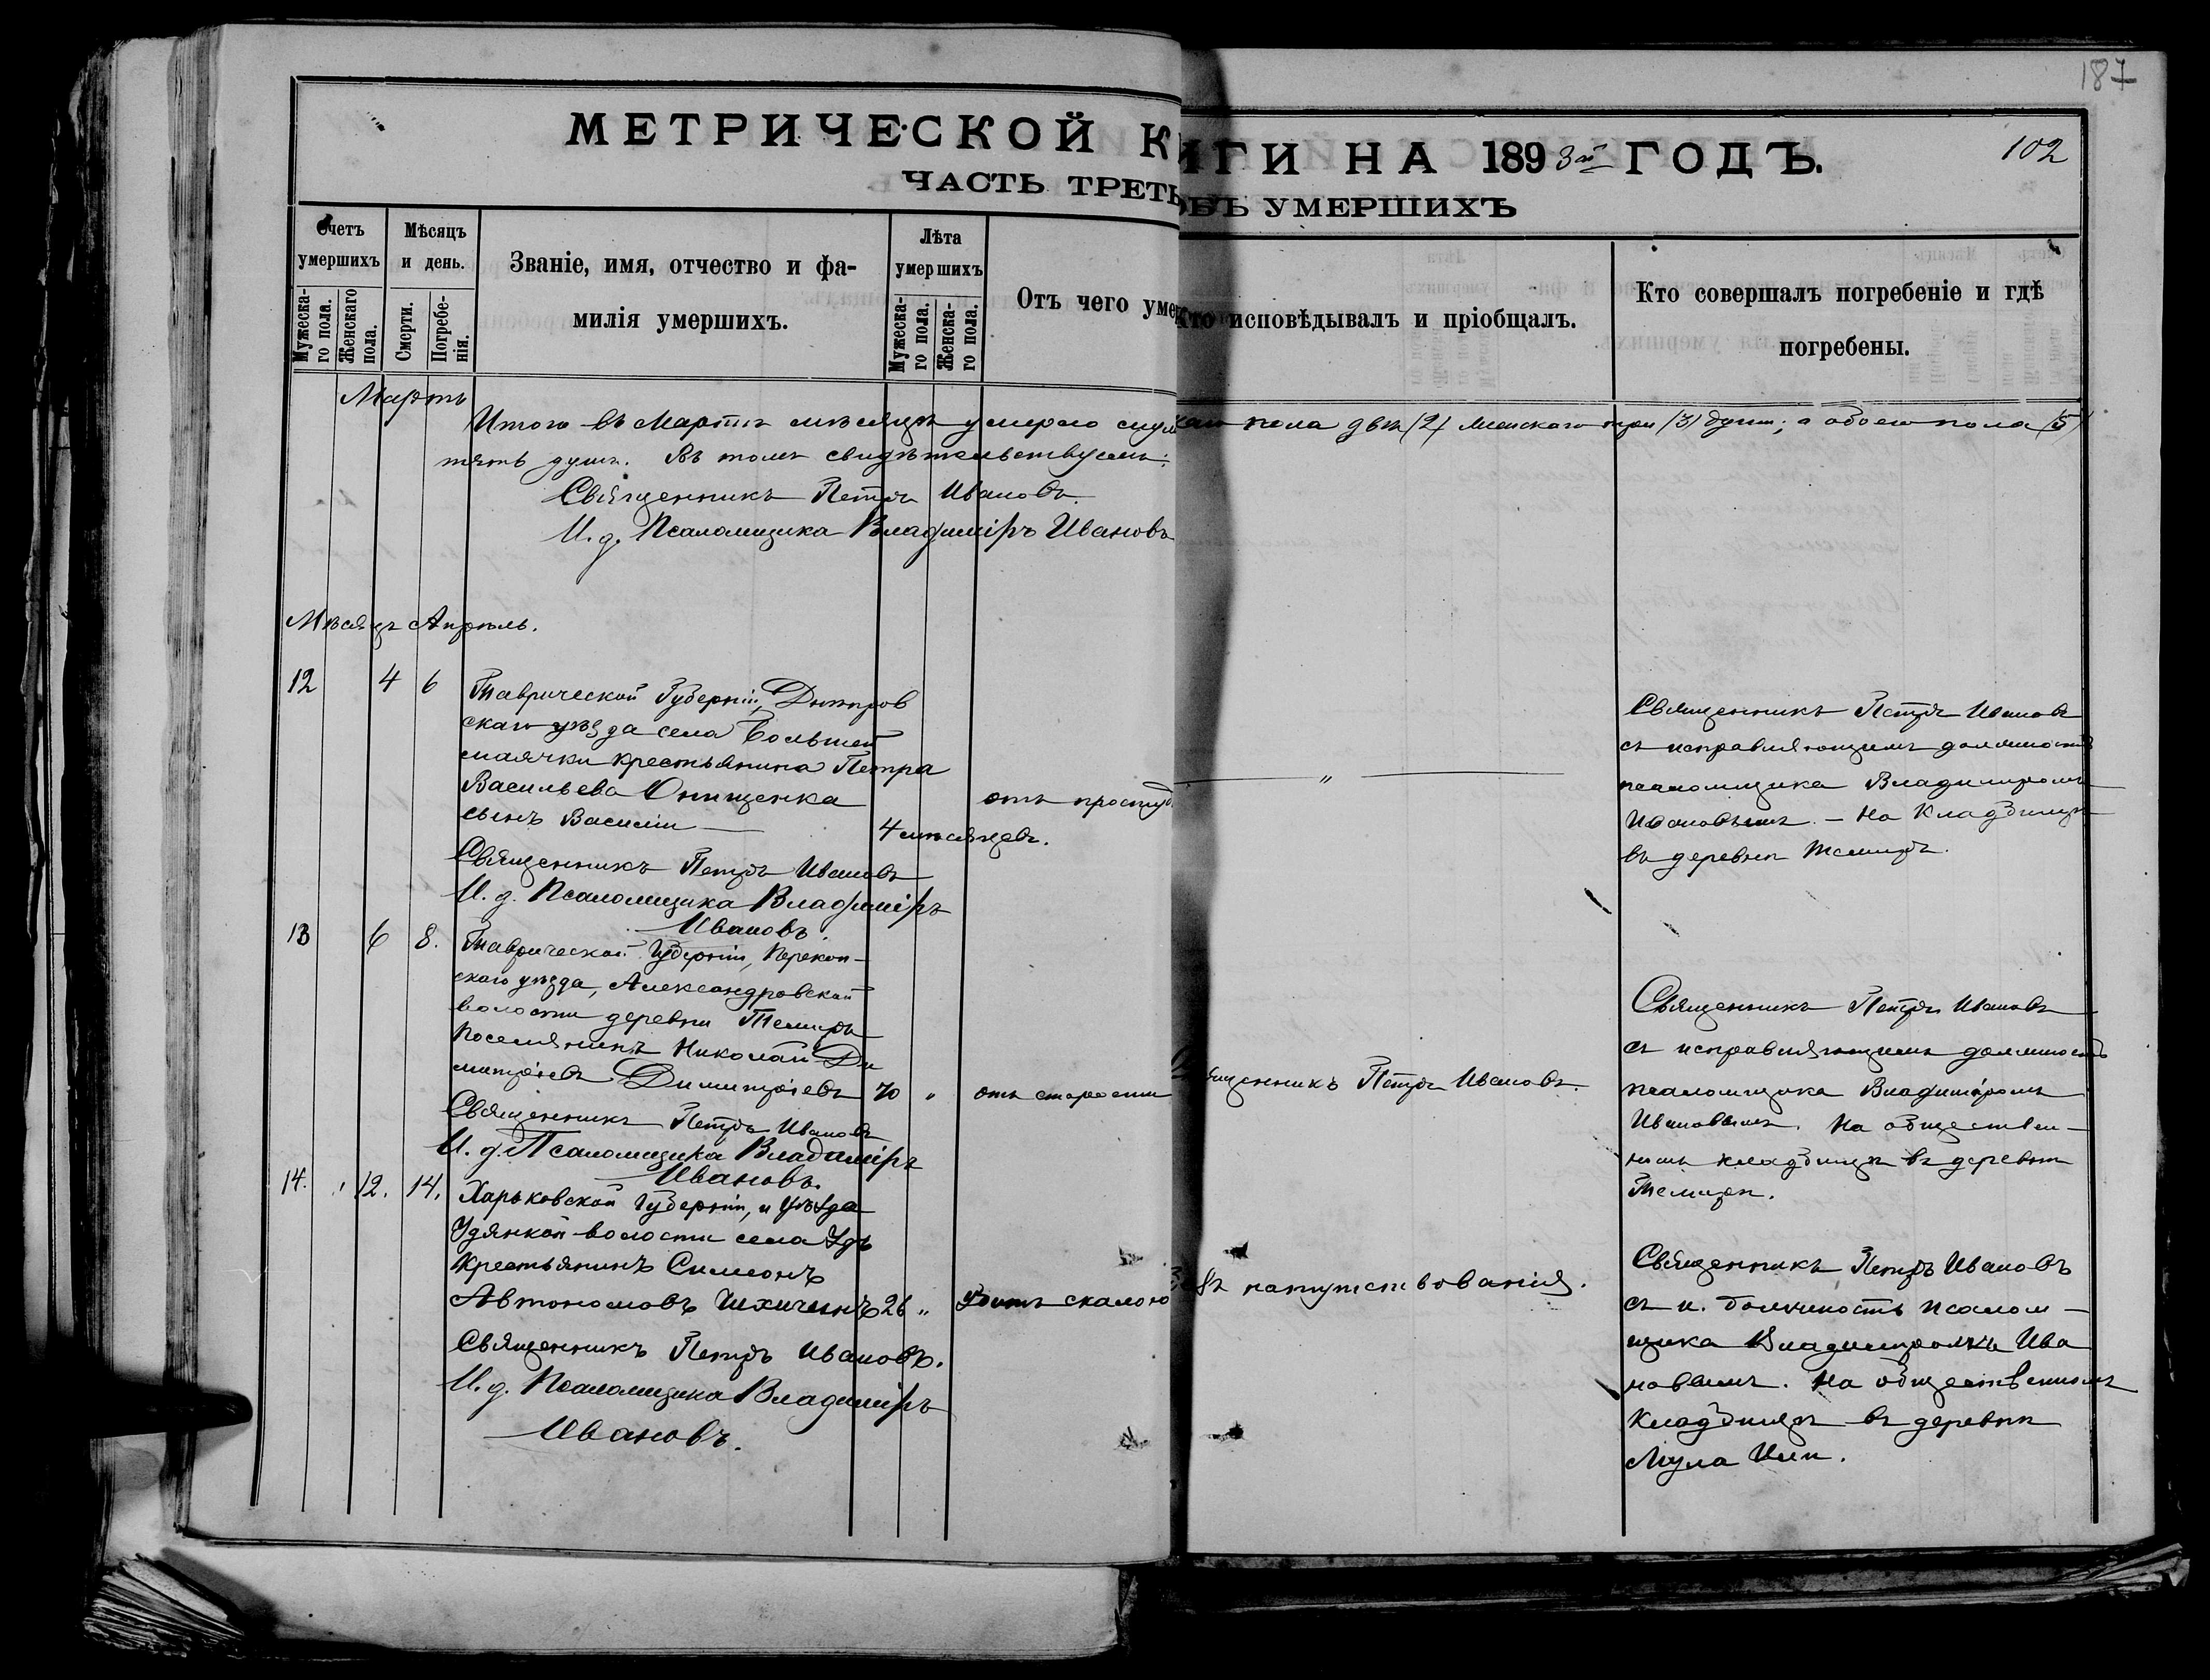 187
МЕТРИЧЕСКОЙ К
ИГИ НА 1893й ГОДЪ.
102
ЧАСТЬ ТРЕТЬ
ОБЪ УМЕРШИХЪ
Счетъ умершихъ
Мужеска-
го пола.
Женскаго
пола.
Мѣсяцъ
и день.
Смерти.
Погребе-
нія.
Званіе, имя, отчество и фа-
милія умершихъ.
Лѣта
умершихъ
Мужеска-
го пола.
Женска-
го пола.
Отъ чего умер
Кто исповѣдывалъ и пріобщалъ.
Кто совершалъ погребеніе и гдѣ
погребены.
Мартъ
Итого въ Мартѣ мѣсяцѣ умерло муж каго пола двѣ (2) женскаго три (3) души; а обоего пола (5)
пять душъ. Въ томъ свидѣтельствуемъ:
Священникъ Петръ Ивановъ.
И. д. Псаломщика Владиміръ Ивановъ
Мѣсяцъ Апрѣль.
12 4 6
Таврической Губерніи, Днѣпров
скаго уѣзда села Большей
маячки крестьянина Петра
Васильева Онищенка
сынъ Василій
4 мѣсяцевъ.
отъ простуд
"
Священникъ Петръ Ивановъ
съ исправляющимъ должность
псаломщика Владиміромъ
Ивановымъ. – На Кладбищѣ
въ деревнѣ Темиръ.
Священникъ Петръ Ивановъ
И. д. Псаломщика Владиміръ
Ивановъ.
13 6 8.
Таврической Губерніи, Перекоп-
скаго уѣзда, Александровской
волости деревни Темиръ
поселянинъ Николай Ди
митріевъ Димитріевъ
70 "
отъ старости
Священникъ Петръ Ивановъ.
Священникъ Петръ Ивановъ
съ исправляющимъ должность
псаломщика Владиміромъ
Ивановымъ. На обществен-
номъ кладбищѣ въ деревнѣ
Темиръ.
Священникъ Петръ Ивановъ
И. д. Псаломщика Владиміръ
Ивановъ.
14. 12. 14.
Харьковской Губерніи, и уѣзда
Удянкой волости села Удъ
Крестьянинъ Симеонъ
Автономовъ
26 "
Убитъ скалою
безъ напутствованія.
Священникъ Петръ Ивановъ
съ и. должность псалом-
щика Владиміромъ Ива
новымъ. На общественномъ
кладбищѣ въ деревнѣ
Мула Или.
Священникъ Петръ Ивановъ.
И. д. Псаломщика Владиміръ
Ивановъ.